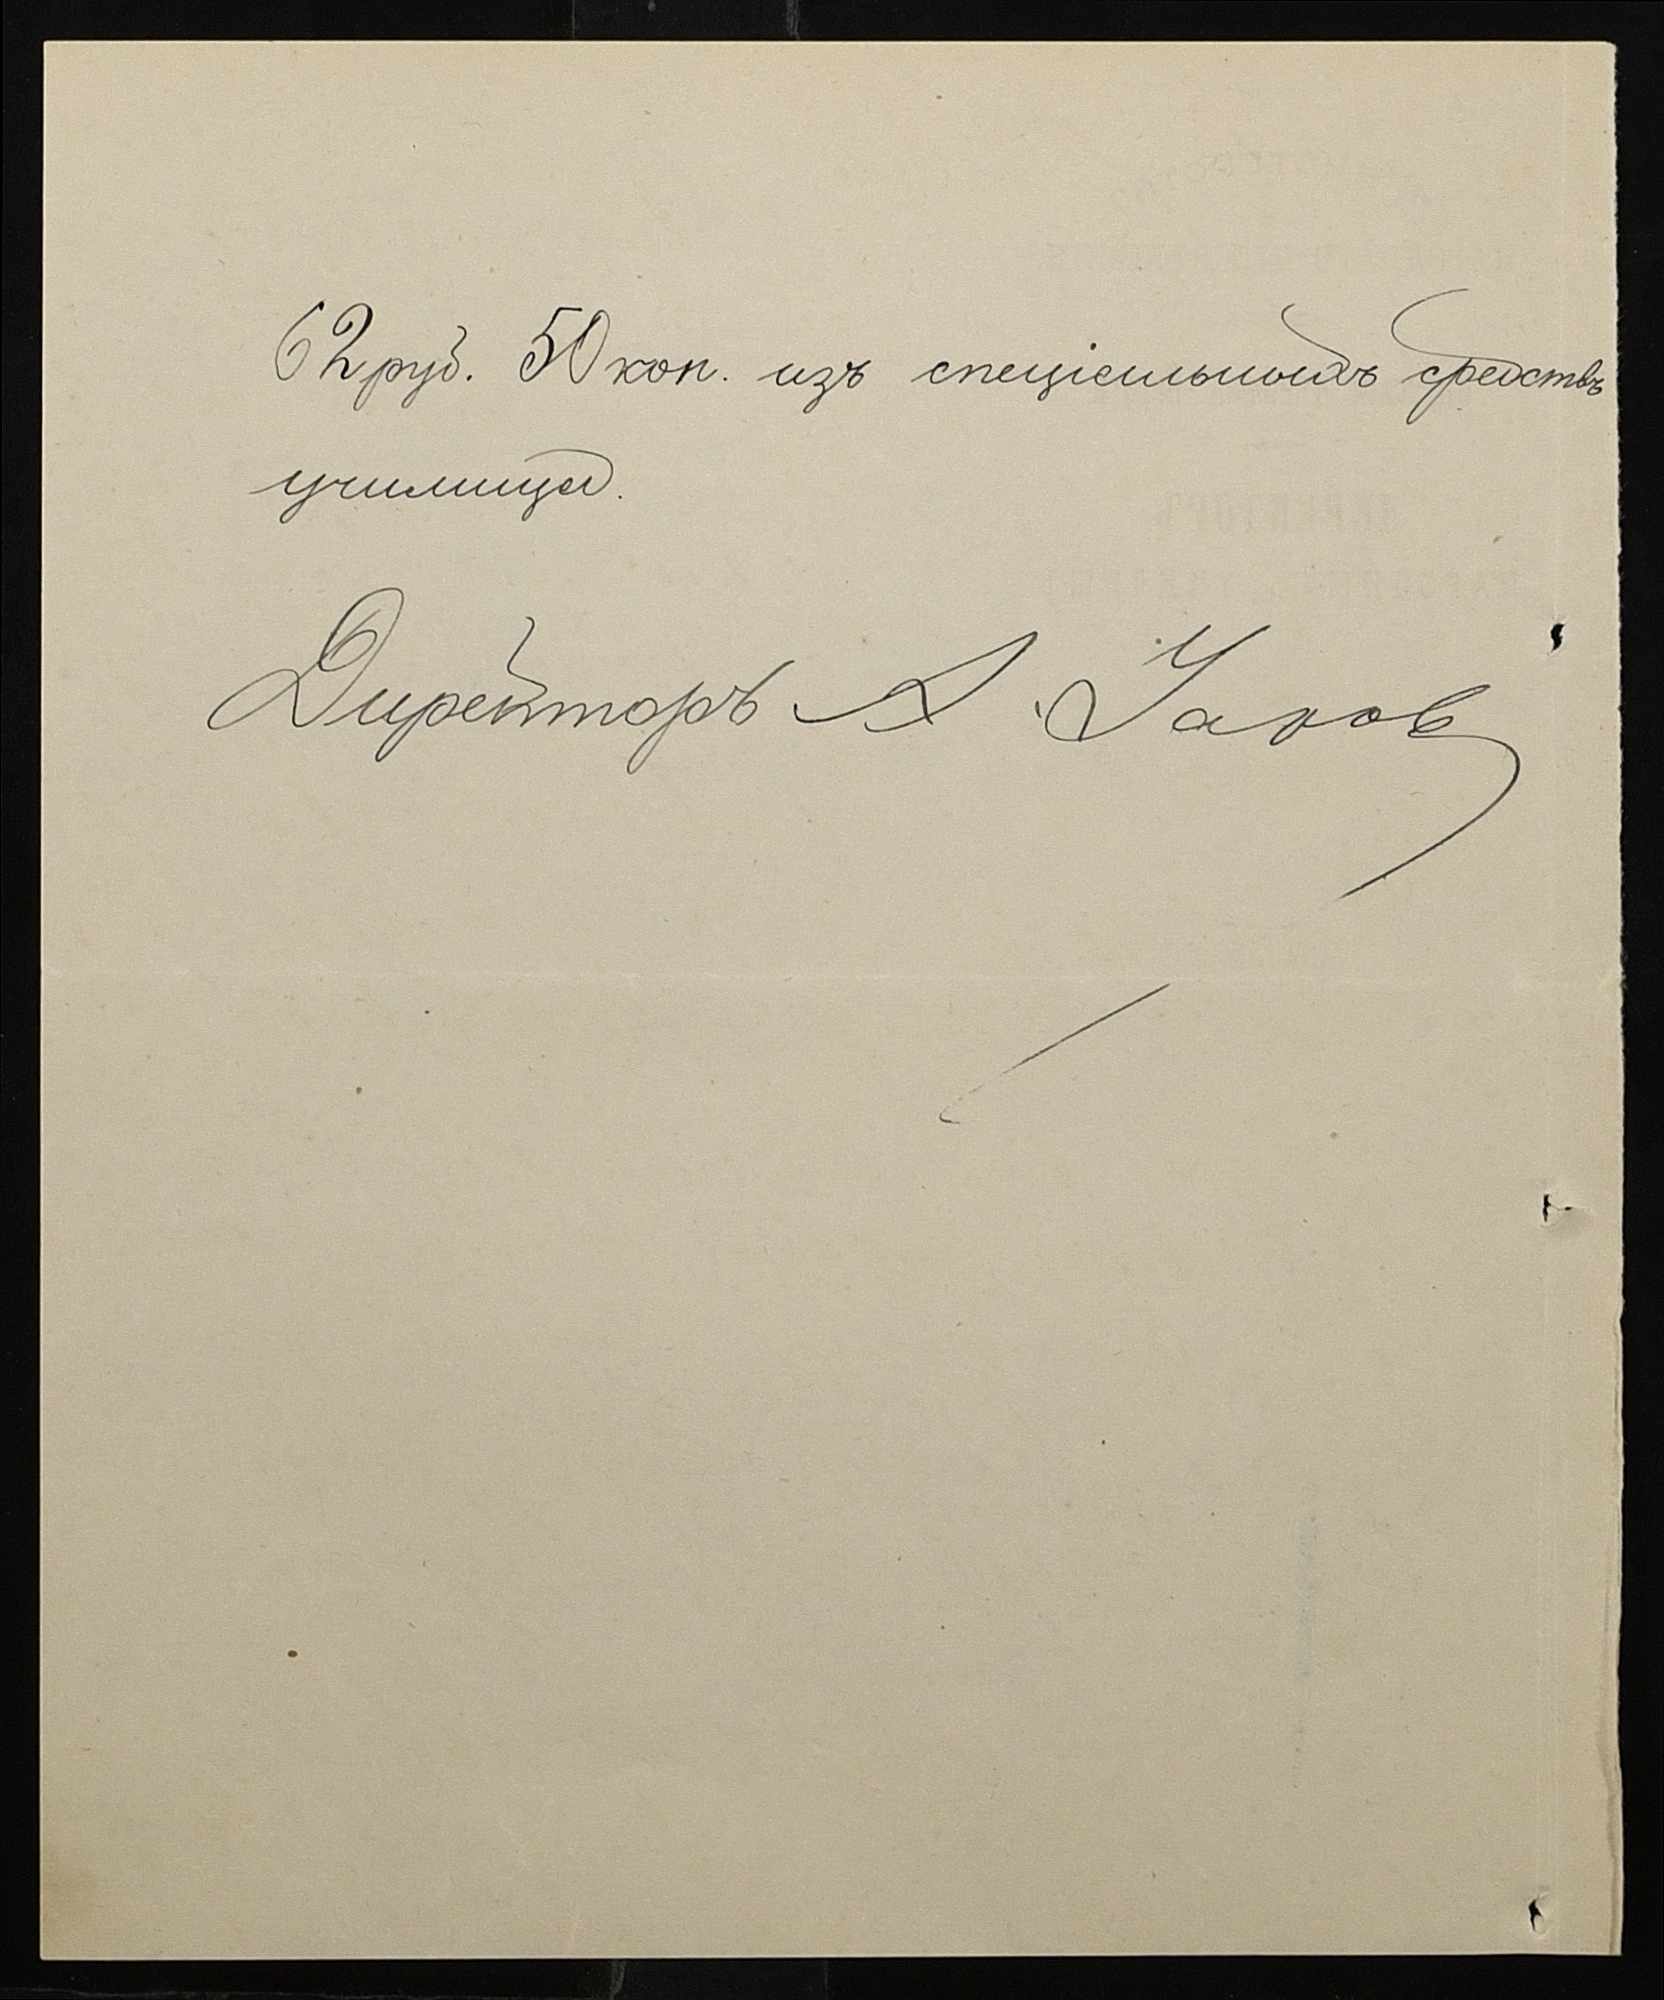 62 руб. 50 коп. изъ спеціальныхъ средствъ
училища.
Директоръ А.